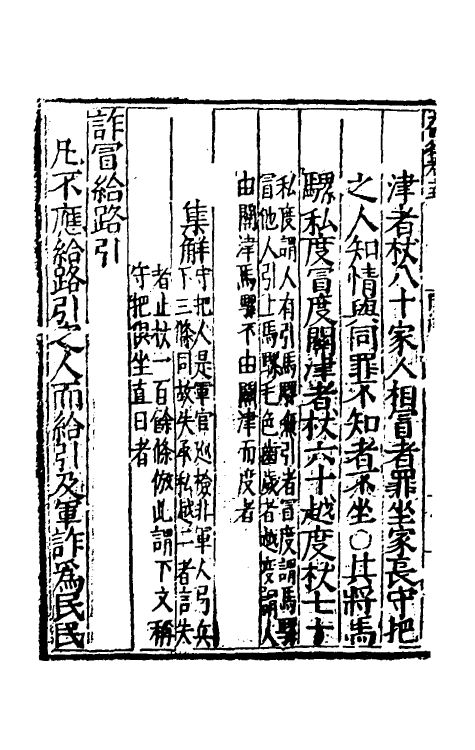 津者杖八十家人相冒者罪坐家長守把
之人知情與同罪不知者不坐○其將馬
騾私度冒度關津者杖六十越度杖七十
私度謂人有引馬騾無引者冒度謂馬騾
冒他人引上馬騾毛色齒歲者越度謂人
由關津馬騾不由關津而度者
集解守把人是軍官巡檢非軍人弓兵
下三條同故失承私越二者言失
者止杖一百餘條倣此謂下文稱
守把俱坐直日者
詐冒給路引
凡不應給路引之人而給引及軍詐為民民